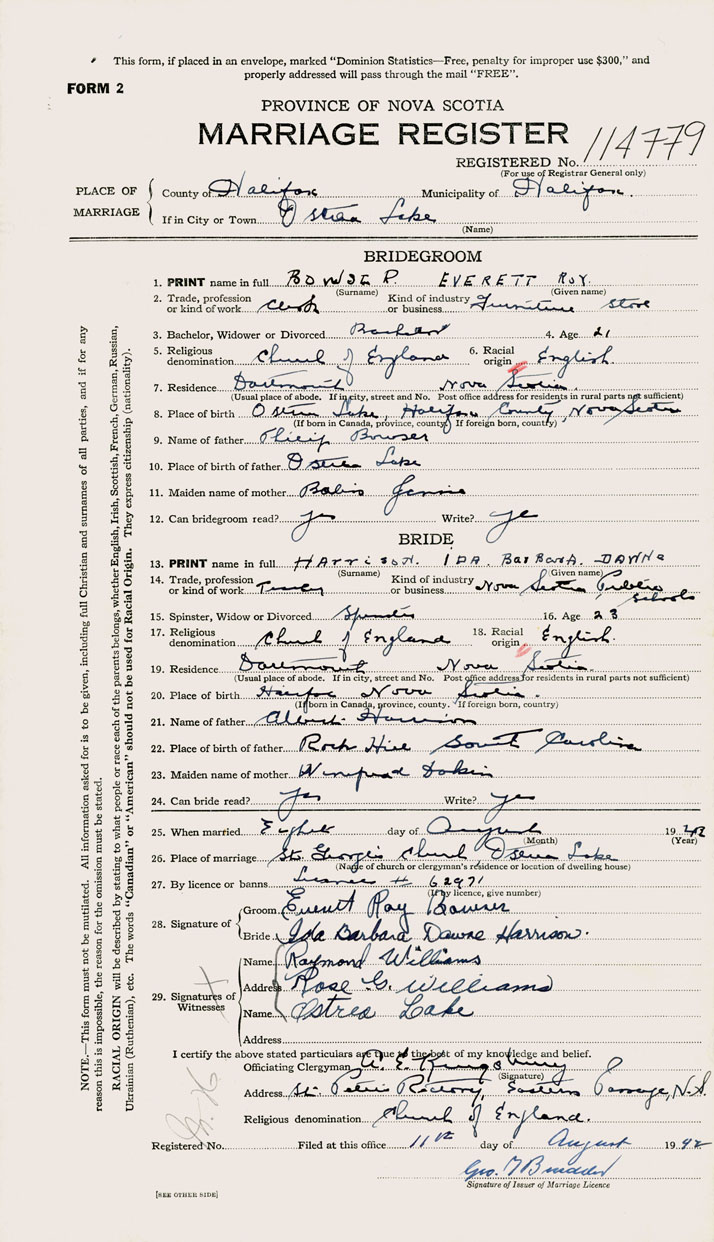 This form, if placed in an envelope, marked "Dominion Statistics—Free, penalty for improper use $300," and
properly addressed will pass through the mail "FREE".
FORM 2
PROVINCE OF NOVA SCOTIA
MARRIAGE REGISTER
REGISTERED No. 114779
(For use of Registrar General only)
PLACE OF MARRIAGE
County of Halifax Municipality of Halifax.
If in City or Town Ostrea Lake
(Name)
BRIDEGROOM
1. PRINT name in full BOWSER. EVERETT ROY.
(Surname) (Given name)
2. Trade, profession or kind of work Clerk Kind of industry or business Furniture Store
3. Bachelor, Widower or Divorced Bachelor 4. Age 21
5. Religious denomination Church of England 6. Racial origin English.
7. Residence Dartmouth Nova Scotia.
(Usual place of abode. If in city, street and No. Post office address for residents in rural parts not sufficient)
8. Place of birth Ostrea Lake, Halifax County, Nova Scotia
(If born in Canada, province, county. If foreign born, country)
9. Name of father Philip Bowser
10. Place of birth of father Ostrea Lake
11. Maiden name of mother Jennie
12. Can bridegroom read? yes Write? yes
BRIDE
13. PRINT name in full HARRISON. IDA BARBARA. DAWNE
(Surname) (Given name)
14. Trade, profession or kind of work Kind of industry or business Nova Scotia Public Schools
15. Spinster, Widow or Divorced Spinster 16. Age 23
17. Religious denomination Church of England 18. Racial origin English.
19. Residence Dartmouth Nova Scotia.
(Usual place of abode. If in city, street and No. Post office address for residents in rural parts not sufficient)
20. Place of birth Halifax Nova Scotia.
(If born in Canada, province, county. If foreign born, country)
21. Name of father Albert Harrison
22. Place of birth of father Rock Hill South Carolina
23. Maiden name of mother Winifred Dakin
24. Can bride read? yes Write? yes
25. When married Eighth day of August 1942
(Month) (Year)
26. Place of marriage St. George's Church Ostrea Lake
(Name of church or clergyman's residence or location of dwelling house)
27. By licence or banns License # 62971
(If by licence, give number)
28. Signature of
Groom Everett Roy Bowser
Bride Ida Barbara Dawne Harrison.
29. Signatures of Witnesses
Name Raymond Williams
Address Rose G. Williams
Name Ostrea Lake
Address
I certify the above stated particulars are true to the best of my knowledge and belief.
Officiating Clergyman A. E. Kingsbury
(Signature)
Address St. Peter's Rectory, Eastern Passage, N.S.
Religious denomination Church of England.
Registered No. Filed at this office 11th day of August 1942
Signature of Issuer of Marriage Licence
[SEE OTHER SIDE]
NOTE.—This form must not be mutilated. All information asked for is to be given, including full Christian and surnames of all parties, and if for any
reason this is impossible, the reason for the omission must be stated.
RACIAL ORIGIN will be described by stating to what people or race each of the parents belongs, whether English, Irish, Scottish, French, German, Russian,
Ukrainian (Ruthenian), etc. The words "Canadian" or "American" should not be used for Racial Origin. They express citizenship (nationality).